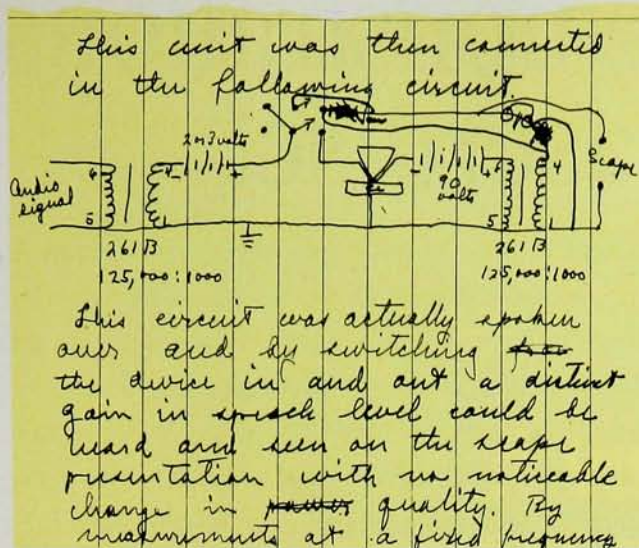 This unit was then connected
in the following circuit.
2 or 3 volts
Audio
signal
6
5
4
1
- +
- +
90
volts
6
5
4
1
Scope
261B
125,000:1000
261B
125,000:1000
This circuit was actually spoken
over and by switching
the device in and out a distinct
gain in speech level could be
heard and seen on the scope
presentation with no noticeable
change in power quality. By
measurements at a fixed frequency